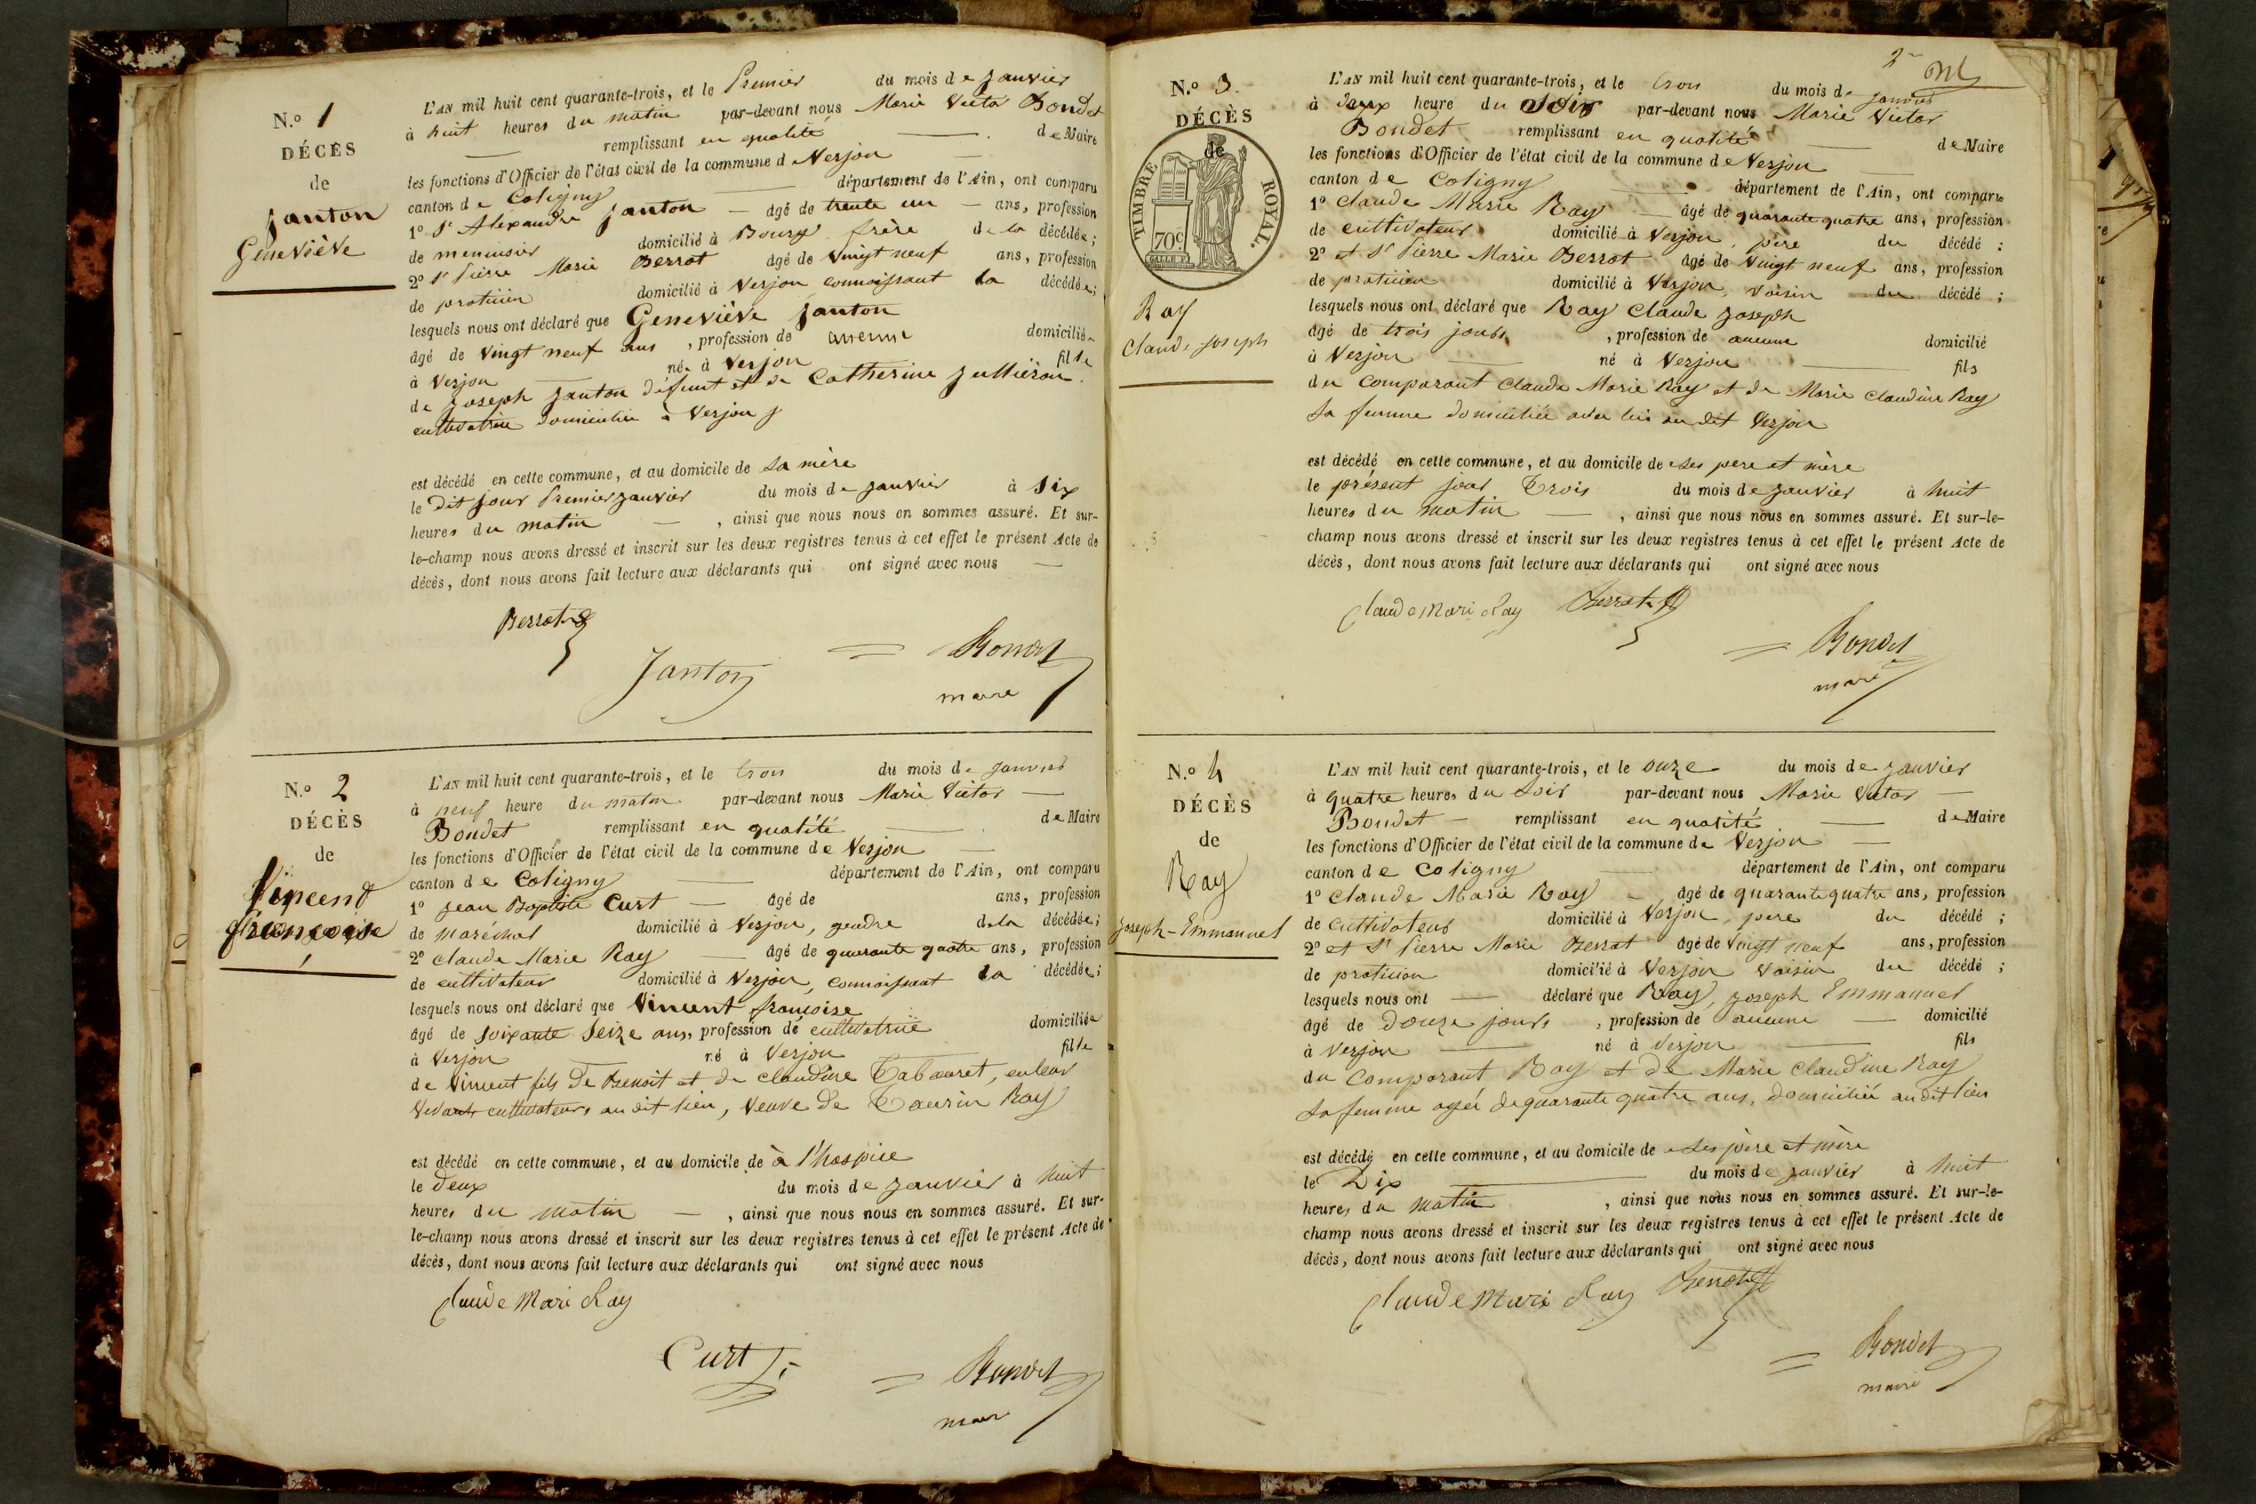 N.o 1
DÉCÈS
de
Janton
Geneviève
L'AN mil huit cent quarante-trois, et le Premier du mois de Janvier
à huit heures du matin par-devant nous Marie Victor Bondet
remplissant en qualité de Maire
les fonctions d'Officier de l'état civil de la commune d Verjon
canton de Coligny département de l'Ain, ont comparu
1o Sr Alexandre Janton âgé de trente un ans, profession
de menuisier domicilié à Bourg frère de la décédée;
2o Sr Pierre Marie Berrot âgé de vingt neuf ans, profession
de praticien domicilié à Verjon connaissant la décédée;
lesquels nous ont déclaré que Geneviève Janton
âgé de vingt neuf ans, profession de aucune domiciliée
à Verjon née à Verjon fille
de Joseph Janton défunt et de Catherine Jullieron
cultivatrice domiciliée à Verjon
est décédé en cette commune, et au domicile de sa mère
le dit jour Premier janvier du mois de janvier à six
heures du matin, ainsi que nous nous en sommes assuré. Et sur-
le-champ nous avons dressé et inscrit sur les deux registres tenus à cet effet le présent Acte de
décès, dont nous avons fait lecture aux déclarants qui ont signé avec nous
Berrot
Janton
Bondet
maire
N.o 2
DÉCÈS
de
Vincent
françoise
L'AN mil huit cent quarante-trois, et le trois du mois de janvier
à neuf heure du matin par-devant nous Marie Victor
Bondet remplissant en qualité de Maire
les fonctions d'Officier de l'état civil de la commune de Verjon
canton de Coligny département de l'Ain, ont comparu
1o Jean Baptiste Curt âgé de ans, profession
de maréchal domicilié à Verjon, gendre de la décédée;
2o Claude Marie Ray âgé de quarante quatre ans, profession
de cultivateur domicilié à Verjon, connaissant la décédée;
lesquels nous ont déclaré que Vincent françoise
âgé de soixante seize ans, profession de cultivatrice domiciliée
à Verjon né à Verjon fille
de Vincent fils de Benoit et de Claudine Tabouret, en leur
vivant cultivateurs au dit lieu, veuve de Taurin Ray
est décédé en cette commune, et au domicile de à l'hospice
le deux du mois de janvier à huit
heures du matin, ainsi que nous nous en sommes assuré. Et sur-
le-champ nous avons dressé et inscrit sur les deux registres tenus à cet effet le présent Acte de
décès, dont nous avons fait lecture aux déclarants qui ont signé avec nous
Claude Mari Ray
Curt
Bondet
maire
2
N.o 3.
DÉCÈS
de
TIMBRE ROYAL.
70c
Ray
Claude Joseph
L'AN mil huit cent quarante-trois, et le trois du mois de janvier
à deux heure du soir par-devant nous Marie Victor
Bondet remplissant en qualité de Maire
les fonctions d'Officier de l'état civil de la commune de Verjon
canton de Coligny département de l'Ain, ont comparu
1o Claude Marie Ray âgé de quarante quatre ans, profession
de cultivateur domicilié à Verjon, père du décédé;
2o et Sr Pierre Marie Berrot âgé de vingt neuf ans, profession
de praticien domicilié à Verjon, voisin du décédé;
lesquels nous ont déclaré que Ray Claude Joseph
âgé de trois jours, profession de aucune domicilié
à Verjon né à Verjon fils
du comparant Claude Marie Ray et de Marie Claudine Ray
sa femme domiciliée avec lui au dit Verjon
est décédé en cette commune, et au domicile de ses père et mère
le présent jour Trois du mois de janvier à huit
heures du matin, ainsi que nous nous en sommes assuré. Et sur-le-
champ nous avons dressé et inscrit sur les deux registres tenus à cet effet le présent Acte de
décès, dont nous avons fait lecture aux déclarants qui ont signé avec nous
Claude Mari Ray Berrot
Bondet
maire
N.o 4
DÉCÈS
de
Ray
Joseph-Emmanuel
L'AN mil huit cent quarante-trois, et le onze du mois de janvier
à quatre heures du soir par-devant nous Marie Victor
Bondet remplissant en qualité de Maire
les fonctions d'Officier de l'état civil de la commune de Verjon
canton de Coligny département de l'Ain, ont comparu
1o Claude Marie Ray âgé de quarante quatre ans, profession
de cultivateur domicilié à Verjon, père du décédé;
2o et Sr Pierre Marie Berrot âgé de vingt neuf ans, profession
de praticien domicilié à Verjon voisin du décédé;
lesquels nous ont déclaré que Ray, Joseph Emmanuel
âgé de douze jours, profession de aucune domicilié
à Verjon né à Verjon fils
du comparant Ray et de Marie Claudine Ray
sa femme agée de quarante quatre ans, domiciliée au dit lieu
est décédé en cette commune, et au domicile de ses père et mère
le Dix du mois de janvier à huit
heures du matin, ainsi que nous nous en sommes assuré. Et sur-le-
champ nous avons dressé et inscrit sur les deux registres tenus à cet effet le présent Acte de
décès, dont nous avons fait lecture aux déclarants qui ont signé avec nous
Claude Mari Ray Berrot
Bondet
maire